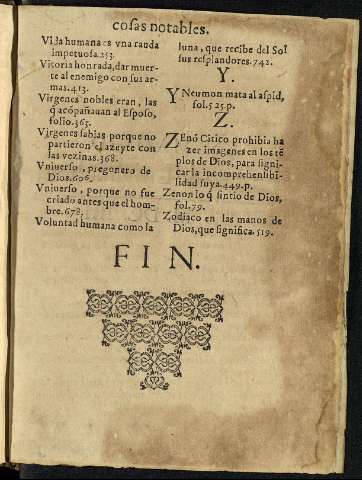 cosas notables.
Vida humana es vna rauda
impetuosa.253.
Vitoria honrada, dar muer-
te al enemigo con sus ar-
mas.413.
Virgenes nobles eran, las
q̃ acõpañauan al Esposo,
folio.365.
Virgenes sabias porque no
partieron el azeyte con
las vezinas.368.
Vniuerso, pregonero de
Dios.606.
Vniuerso, porque no fue
criado antes que el hom-
bre.678.
Voluntad humana como la
luna, que recibe del Sol
sus resplandores.742.
Y.
YNeumon mata al aspid,
fol.525.p.
Z.
ZEnõ Citico prohibia ha
zer imagenes en los tẽ
plos de Dios, para signi-
car la incomprehensibi-
lidad suya.449.p.
Zenon lo q̃ sintio de Dios,
fol.79.
Zodiaco en las manos de
Dios, que significa.519.
FIN.